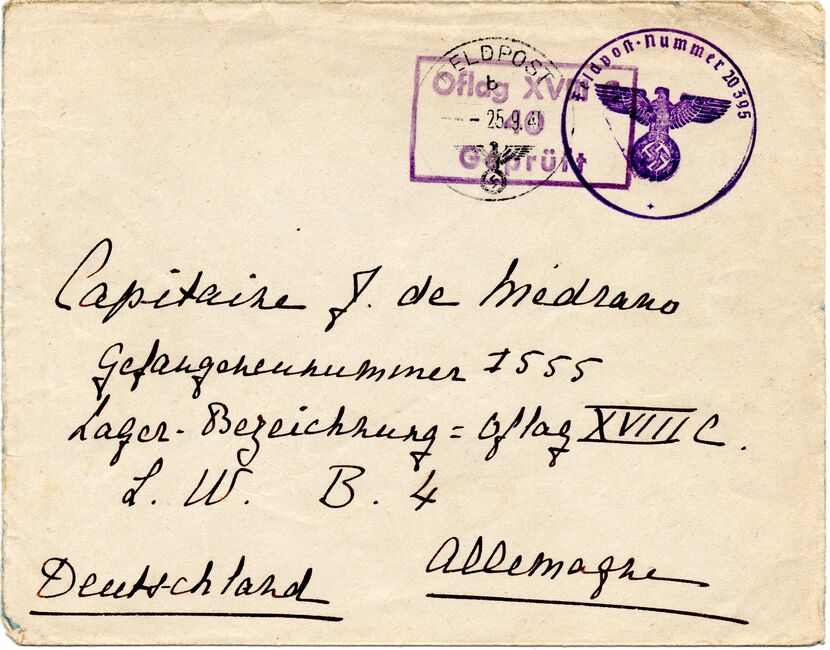 FELDPOST
b
25.9.41
Oflag XVIII C
40
Geprüft
Feldpost-Nummer 20395
Capitaine J. de Médrano
Gefangenennummer 1555
Lager-Bezeichnung = Oflag XVIII C.
L. W. B. 4
Deutschland Allemagne